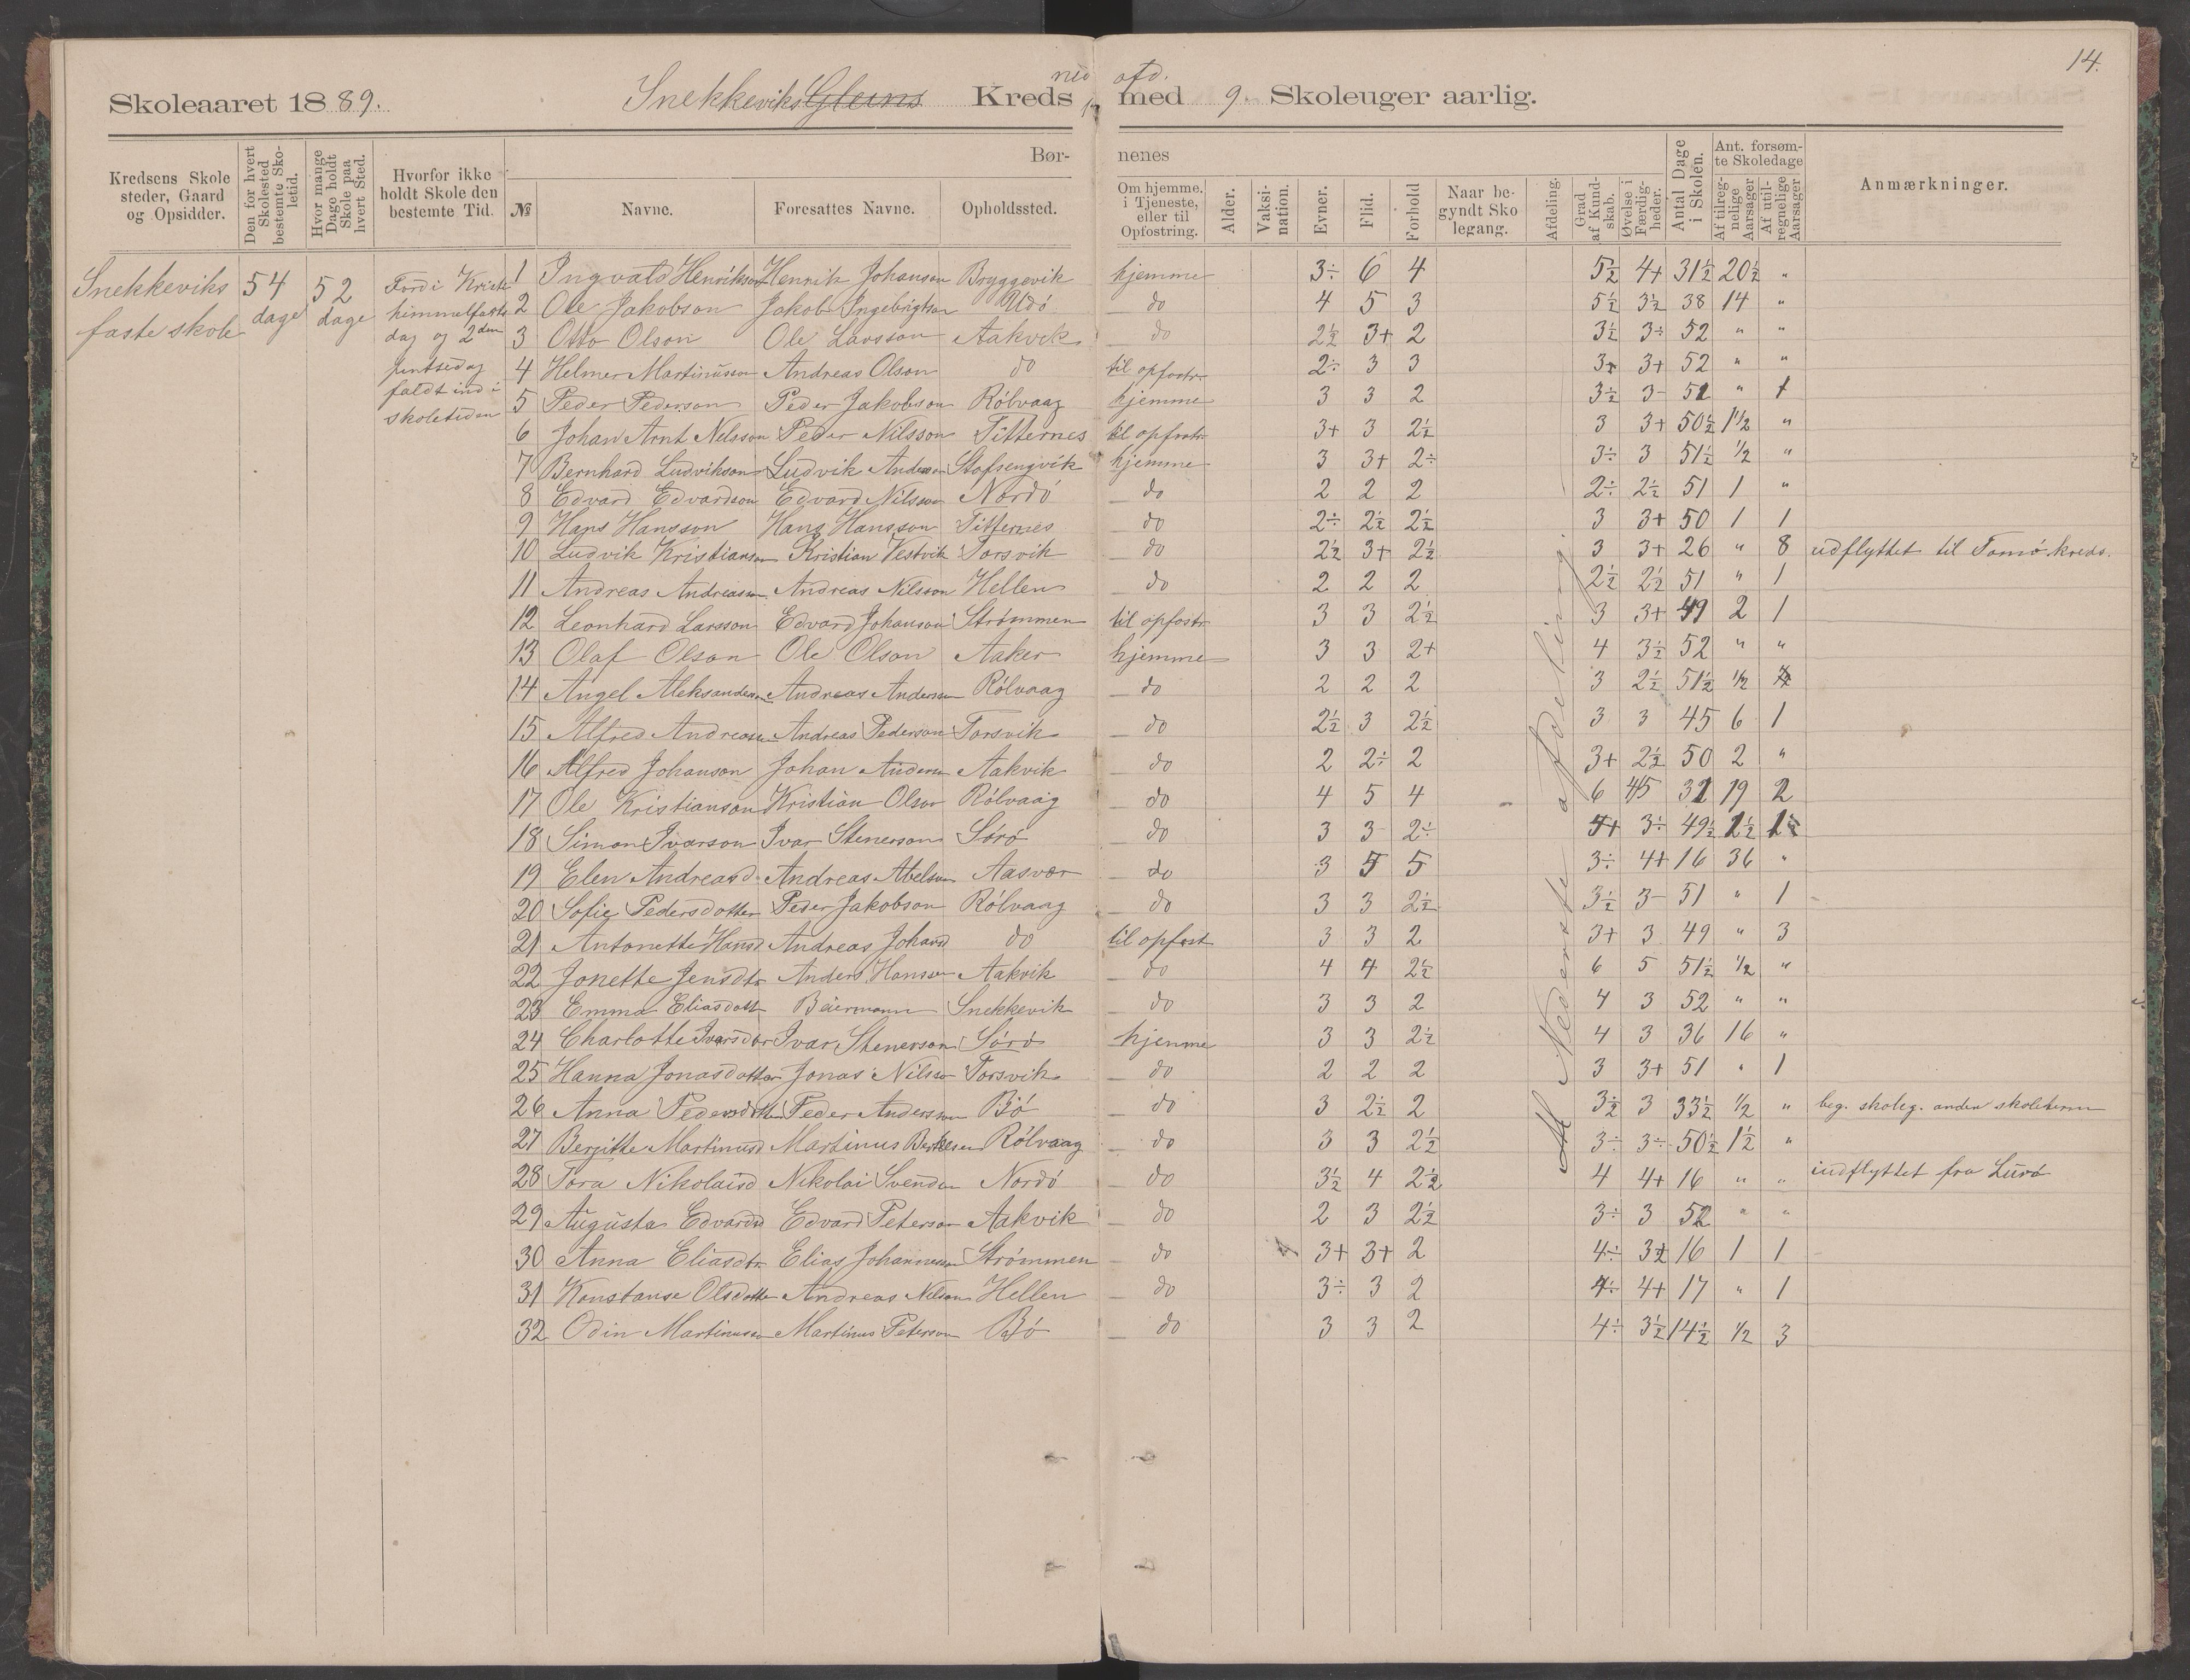 14.
Skoleaaret 1889. Snekkeviks Gleins Kreds ned afd. med 9. Skoleuger aarlig.
Kredsens Skolesteder, Gaard og Opsidder.
Den for hvert Skolested bestemte Skoletid.
Hvor mange Dage holdt Skole paa hvert Sted.
Hvorfor ikke holdt Skole den bestemte Tid.
Børnenes
№ Navne. Foresattes Navne. Opholdssted. Om hjemme, i Tjeneste, eller til Opfostring. Alder. Vaksination. Evner. Flid. Forhold Naar begyndt Skolegang. Afdeling. Grad af Kundskab. Øvelse i Færdigheder. Antal Dage i Skolen. Ant. forsømte Skoledage Af tilregnelige Aarsager Af utilregnelige Aarsager Anmærkninger.
Snekkeviks
faste skole
54
dage
52
dage
Fordi Kristi
himmelfarts
dag og 2den
pintsedag
faldt ind i
skoletiden
Nederste afdeling.
1 Ingvald Henrikson Henrik Johanson Bryggevik hjemme 3÷ 6 4 5½ 4+ 31½ 20½ "
2 Ole Jakobson Jakob Ingebrigtson Udö do 4 5 3 5½ 3½ 38 14 "
3 Otto Olson Ole Larsson Aakvik do 2½ 3+ 2 3½ 3÷ 52 " "
4 Helmer Martinuson Andreas Olson do til opfostr. 2÷ 3 3 3+ 3+ 52 " "
5 Peder Pederson Peder Jakobson Rölvaag hjemme 3 3 2 3½ 3- 51 " 1
6 Johan Arnt Nelsson Peder Nilsson Titternes til opfostr 3+ 3 2½ 3 3+ 50½ 1½ "
7 Bernhard Ludvikson Ludvik Anderson Stofsengvik hjemme 3 3+ 2÷ 3÷ 3 51½ ½ "
8 Edvard Edvardson Edvard Nilsson Nordö do 2 2 2 2÷ 2½ 51 1 "
9 Hans Hansson Hans Hansson Titternes do 2÷ 2½ 2½ 3 3+ 50 1 1
10 Ludvik Kristianson Kristian Vestvik Torsvik do 2½ 3+ 2½ 3 3+ 26 " 8 udflyttet til Tomö kreds.
11 Andreas Andreasson Andreas Nilsson Hellen do 2 2 2 2½ 2½ 51 " 1
12 Leonhard Larsson Edvard Johanson Strømmen til opfostr 3 3 2½ 3 3+ 49 2 1
13 Olaf Olson Ole Olson Aaker hjemme 3 3 2+ 4 3½ 52 " "
14 Angel Aleksanderson Andreas Anderson Rölvaag do 2 2 2 3 2½ 51½ ½
15 Alfred Andreassen Andreas Pederson Torsvik do 2½ 3 2½ 3 3 45 6 1
16 Alfred Johanson Johan Anderson Aakvik do 2 2÷ 2 3+ 2½ 50 2 "
17 Ole Kristianson Kristian Olson Rölvaag do 4 5 4 6 5 31 19 2
18 Simon Ivarson Ivar Stenerson Sörö do 3 3 2÷ 4+ 3÷ 49½ 1½ 1
19 Elen Andreasd. Andreas Abelson Aasvær do 3 5 5 3÷ 4+ 16 36 "
20 Sofie Pedersdotter Peder Jakobson Rölvaag do 3 3 2½ 3½ 3- 51 " 1
21 Antonette Hansd Andreas Johans do til opfost 3 3 2 3+ 3 49 " 3
22 Jonette Jensdtr Anders Hanson Aakvik do 4 4 2½ 6 5 51½ ½ "
23 Emma Eliasdott Beiermann Snekkevik do 3 3 2 4 3 52 " "
24 Charlotte Ivarsdtr Ivar Stenerson Sörö hjemme 3 3 2½ 4 3 36 16 "
25 Hanna Jonasdotter Jonas Nilsson Torsvik do 2 2 2 3 3+ 51 " 1
26 Anna Pedersdotter Peder Andersson Bö do 3 2½ 2 3½ 3 33½ ½ " beg. skoleg. anden skoletermin
27 Bergitte Martinusd Martinus Bertelsen Rölvaag do 3 3 2½ 3÷ 3÷ 50½ 1½ "
28 Tora Nikolaisd Nikolai Svendson Nordö do 3½ 4 2½ 4 4+ 16 " " indflyttet fra Lurö
29 Augusta Edvardsd Edvard Peterson Aakvik do 2 3 2½ 3÷ 3 52 " "
30 Anna Eliasdtr Elias Johannesson Strömmen do 3+ 3+ 2 4÷ 3½ 16 1 1
31 Konstanse Olsdotter Andreas Nilson Hellen do 3÷ 3 2 4÷ 4+ 17 " 1
32 Odin Martinusen Martinus Peterson Bö do 3 3 2 4÷ 3½ 14½ ½ 3